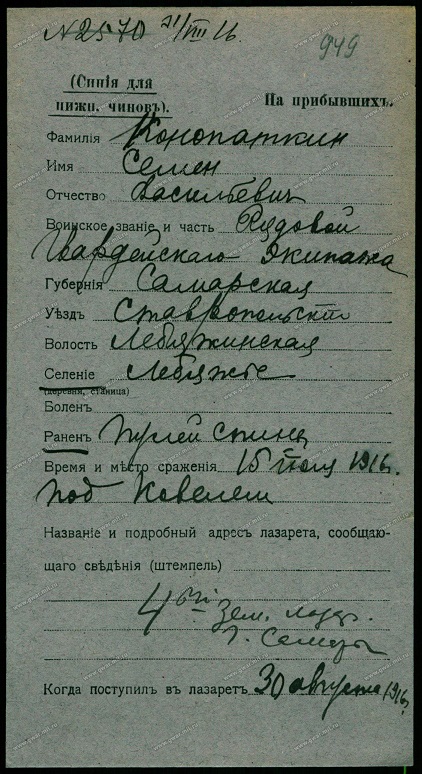 N 2570 21/VIII 16.
949
(Синія для
нижн. чиновъ).
На прибывшихъ.
Фамилія Конопаткин
Имя Семен
Отчество Васильевич
Воинское званіе и часть Рядовой
Гвардейскаго Экипажа
Губернія Самарская
Уѣздъ Ставропольскій
Волость Лебяжинская
Селеніе Лебяжье
(деревня, станица)
Боленъ
Раненъ пулей спина
Время и мѣсто сраженія 15 Июля 1916г.
под Ковелем
Названіе и подробный адресъ лазарета, сообщаю-
щаго свѣдѣнія (штемпель)
4 ый Зем. лазар.
г. Самары
Когда поступилъ въ лазаретъ 30 августа 1916г.